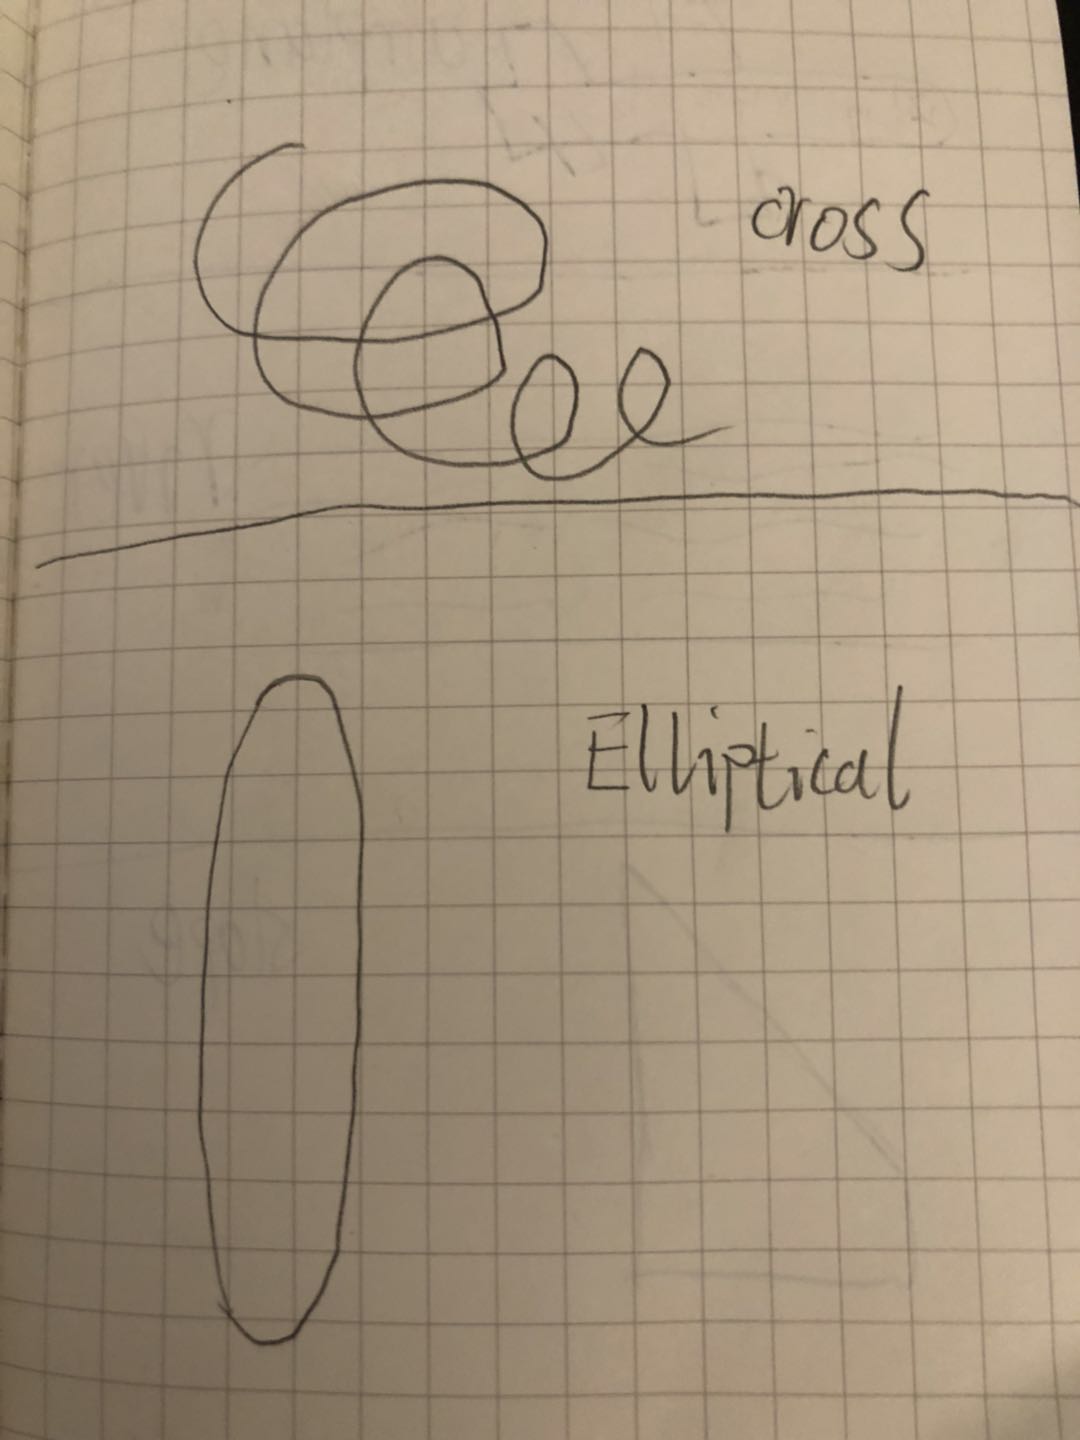 cross
Elliptical